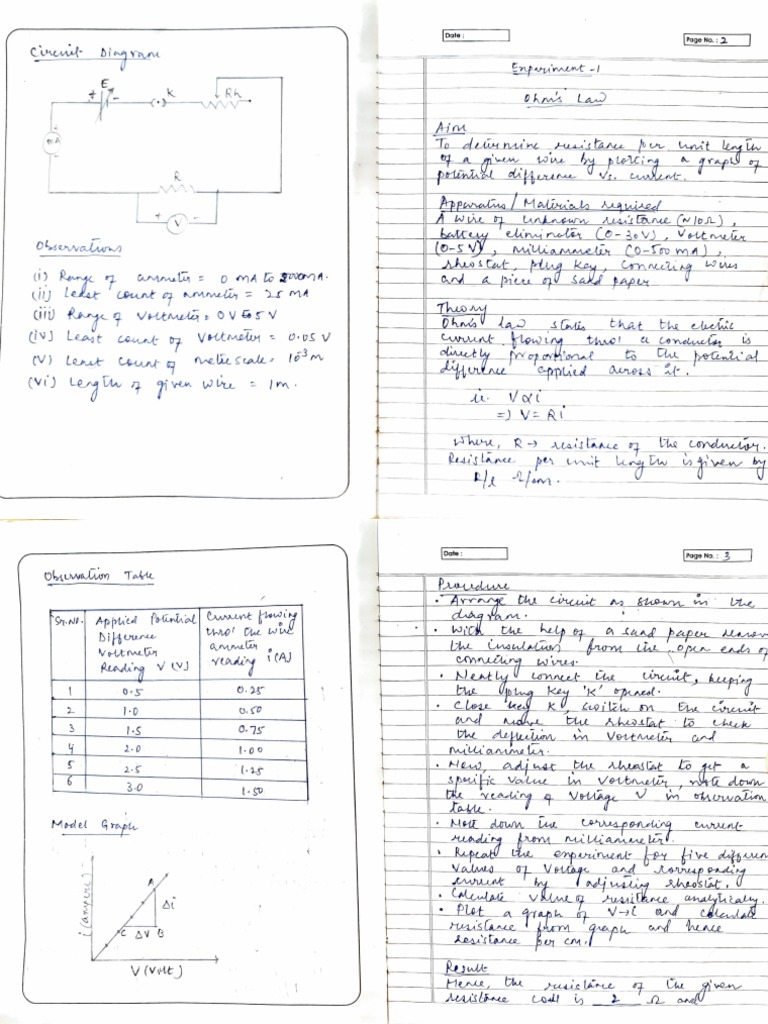 Circuit Diagram
E
+ -
K
Rh
mA
R
+ V -
Observations
(i) Range of ammeter = 0 mA to 5000mA.
(ii) Least count of ammeter = 25 mA
(iii) Range of Voltmeter = 0V to 5V
(iv) Least count of Voltmeter = 0.05 V
(v) Least count of metre scale = 10⁻³ m
(vi) Length of given wire = 1m.
Date :
Page No. : 2
Experiment - 1
Ohm's Law
Aim
To determine resistance per unit length
of a given wire by plotting a graph of
potential difference vs. current.
Apparatus / Materials required
A wire of unknown resistance (~10Ω),
battery eliminator (0-30V), Voltmeter
(0-5V), milliammeter (0-500 mA),
rheostat, plug key, connecting wires
and a piece of sand paper
Theory
Ohm's law states that the electric
current flowing thro' a conductor is
directly proportional to the potential
difference applied across it.
ie. V∝i
=> V = Ri
where, R → resistance of the conductor.
Resistance per unit length is given by
R/l Ω/cm.
Observation Table
Sr.No. Applied Potential Difference Voltmeter Reading V (V) Current flowing thro' the wire ammeter reading i(A)
1 0.5 0.25
2 1.0 0.50
3 1.5 0.75
4 2.0 1.00
5 2.5 1.25
6 3.0 1.50
Model Graph
i (ampere)
A
Δi
C ΔV B
V (Volt)
Date :
Page No. : 3
Procedure
• Arrange the circuit as shown in the
diagram.
• With the help of a sand paper remove
the insulation from the open ends of
connecting wires.
• Neatly connect the circuit, keeping
the plug key 'K' opened.
• Close key K, switch on the circuit
and move the rheostat to check
the deflection in voltmeter and
milliammeter.
• Now, adjust the rheostat to get a
specific value in voltmeter, note down
the reading of voltage V in observation
table.
• Note down the corresponding current
reading from milliammeter.
• Repeat the experiment for five differen
values of voltage and corresponding
current by adjusting rheostat.
• Calculate value of resistance analytically.
• Plot a graph of V→i and calculate
resistance from graph and hence
resistance per cm.
Result
Hence, the resistance of the given
resistance coil is 2 Ω and